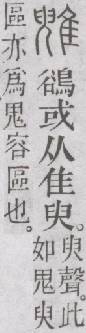 雓鵒或从隹臾。臾聲。此
如鬼臾
區亦爲鬼容區也。